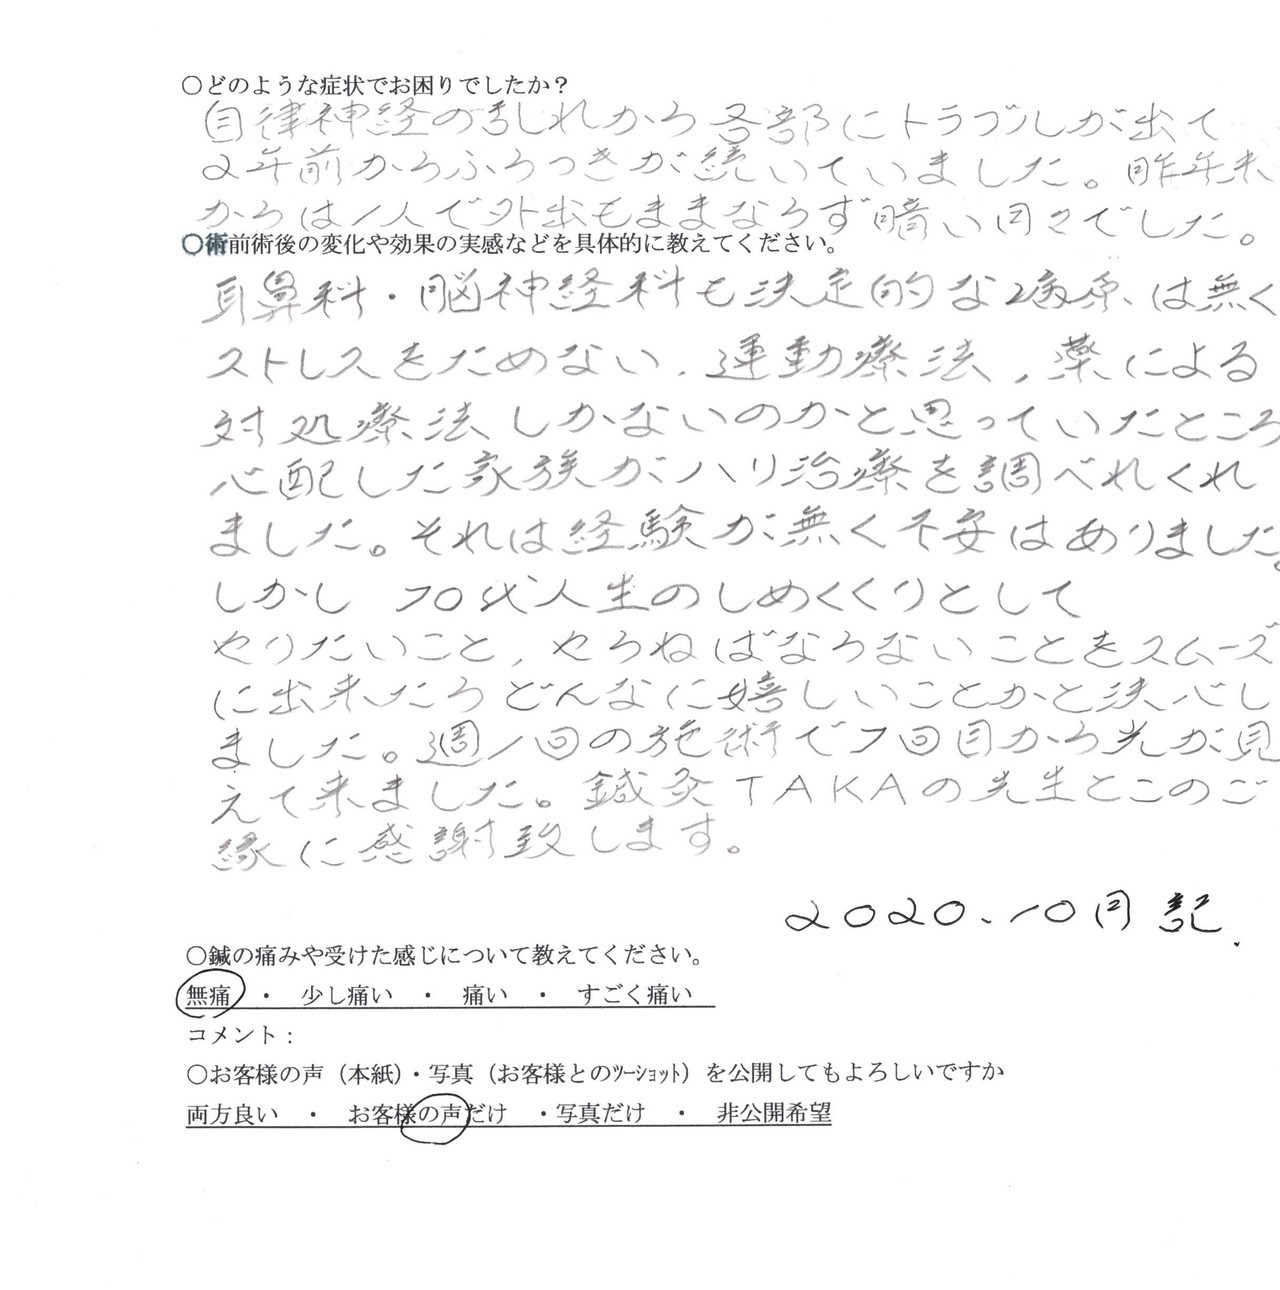 〇どのような症状でお困りでしたか？
自律神経の乱れから各部にトラブルが出て
2年前からふらつきが続いていました。昨年末
からは1人で外出もままならず暗い日々でした。
〇術前術後の変化や効果の実感などを具体的に教えてください。
耳鼻科・脳神経科も決定的な病原は無く
ストレスをためない、運動療法，薬による
対処療法しかないのかと思っていたところ
心配した家族がハリ治療を調べれくれ
ました。それは経験が無く不安はありました。
しかし 70代人生のしめくくりとして
やりたいこと，やらねばならないことをスムーズ
に出来たらどんなに嬉しいことかと決心し
ました。週1回の施術で7回目から光が見
えて来ました。鍼灸TAKAの先生とこのご
縁に感謝致します。
2020.10月記.
〇鍼の痛みや受けた感じについて教えてください。
無痛 ・ 少し痛い ・ 痛い ・ すごく痛い
コメント：
〇お客様の声（本紙）・写真（お客様とのﾂｰｼｮｯﾄ）を公開してもよろしいですか
両方良い ・ お客様の声だけ ・写真だけ ・ 非公開希望